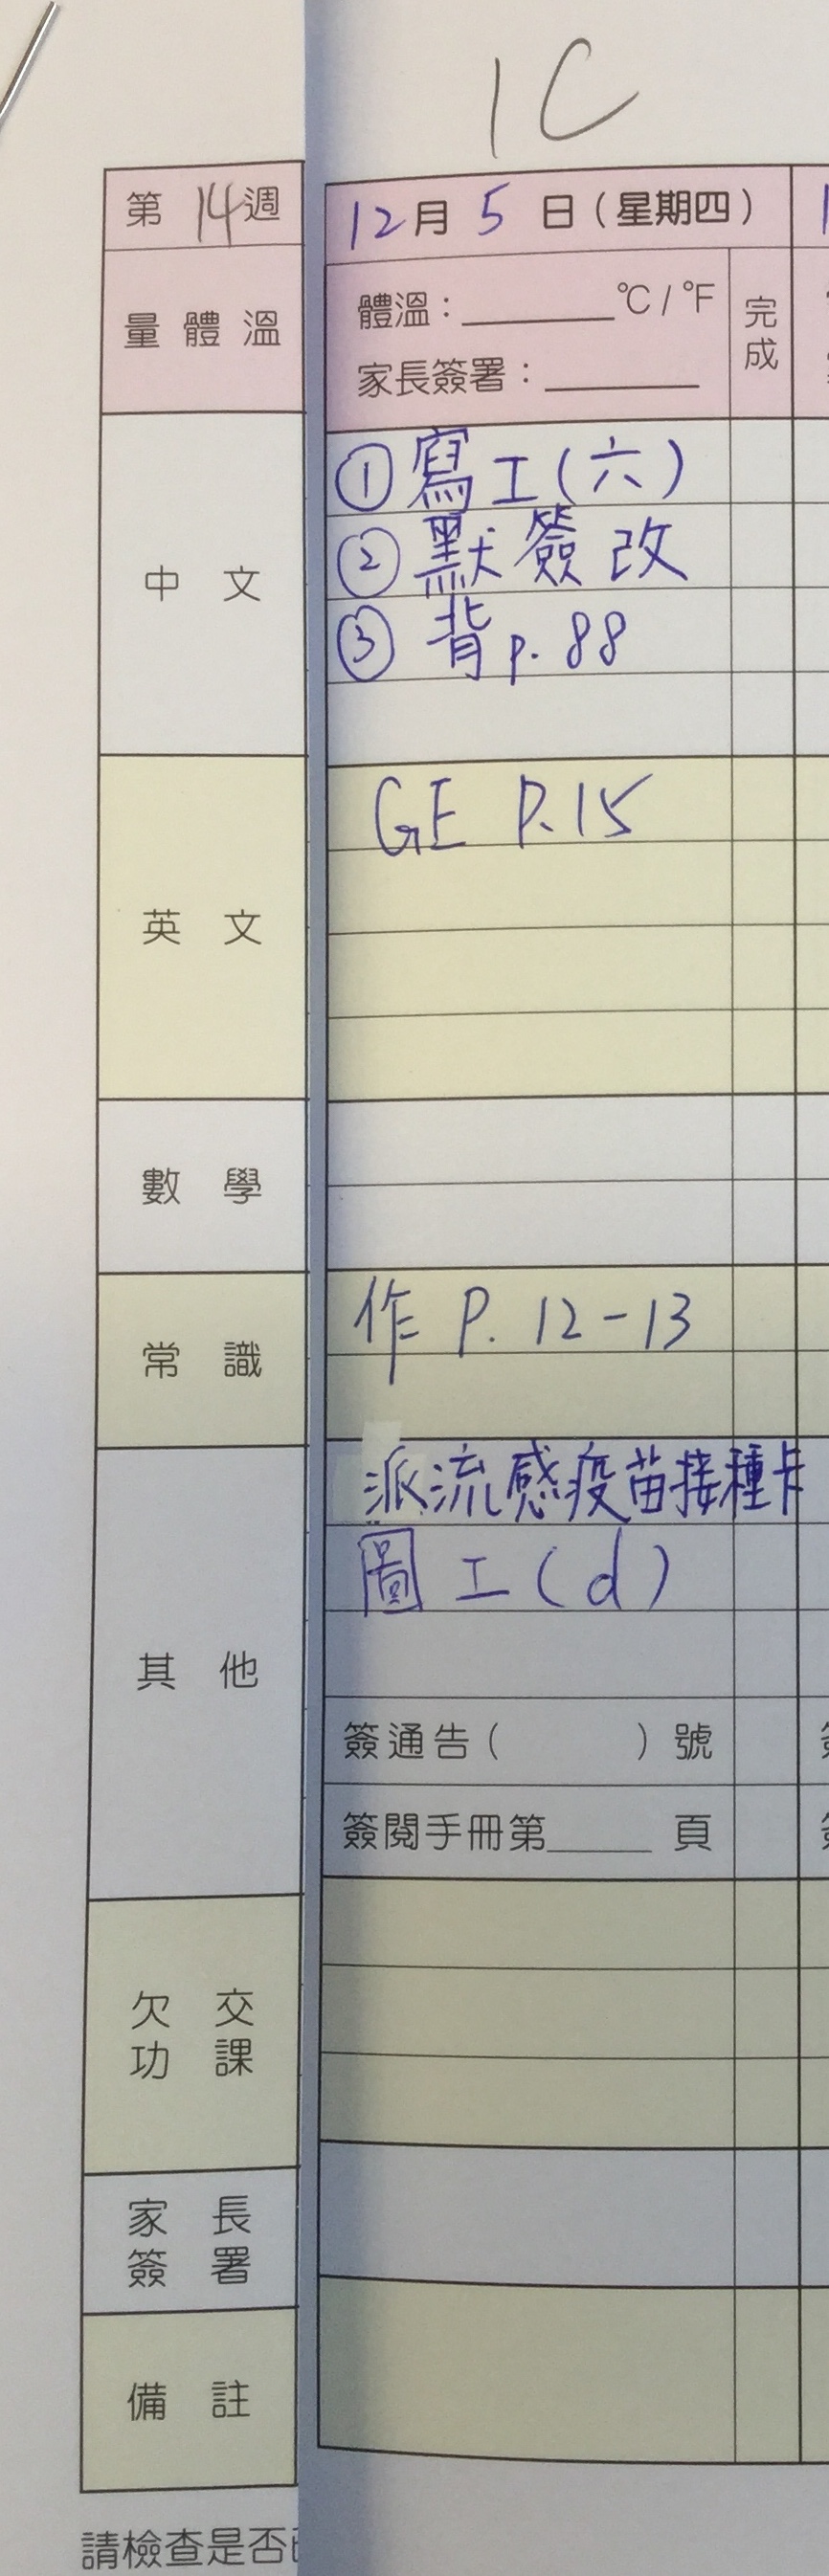 1C
第 14 週
12 月 5 日（星期四）
量體溫
體溫：______°C / °F
家長簽署：______
完成
中文
① 寫工(六)
② 默簽改
③ 背p.88
英文
GE P.15
數學
常識
作 P. 12-13
其他
派流感疫苗接種卡
圖工(d)
簽通告（ ）號
簽閱手冊第______頁
欠交功課
家長簽署
備註
請檢查是否